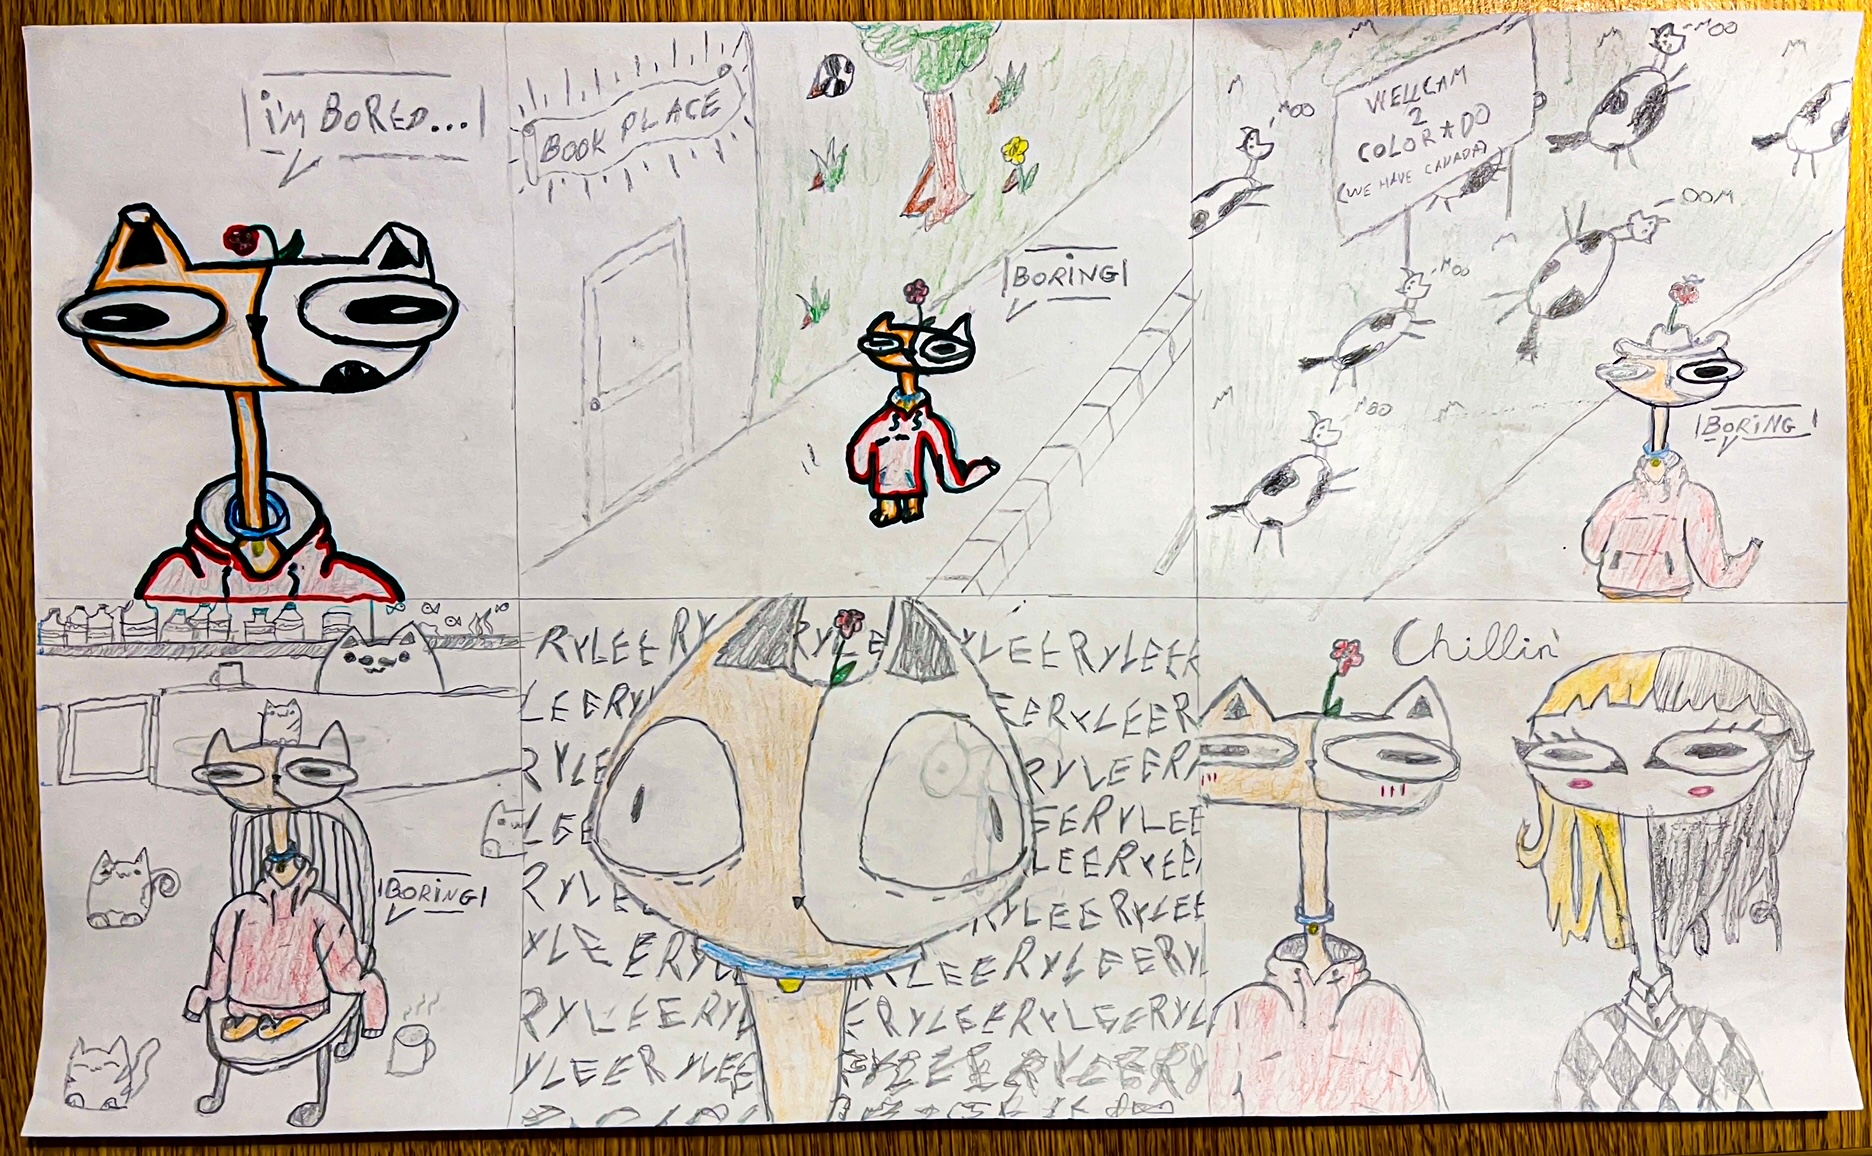 i'M BORED...
BOOK PLACE
BORING
WELLCAM
2
COLORADO
(WE HAVE CANADA)
MOO
MOO
MOO
MOO
OOM
BORING
BORING
RYLEERY RYLEE YLEERYLEER
LEERY EERYLEER
RYLE RYLEERY
LEE EERYLEE
RYLE LEERYLEE
YLEERY LEERYLEERYL
RYLEERYL ERYLEERYLEERYL
YLEERYLEE
Chillin'